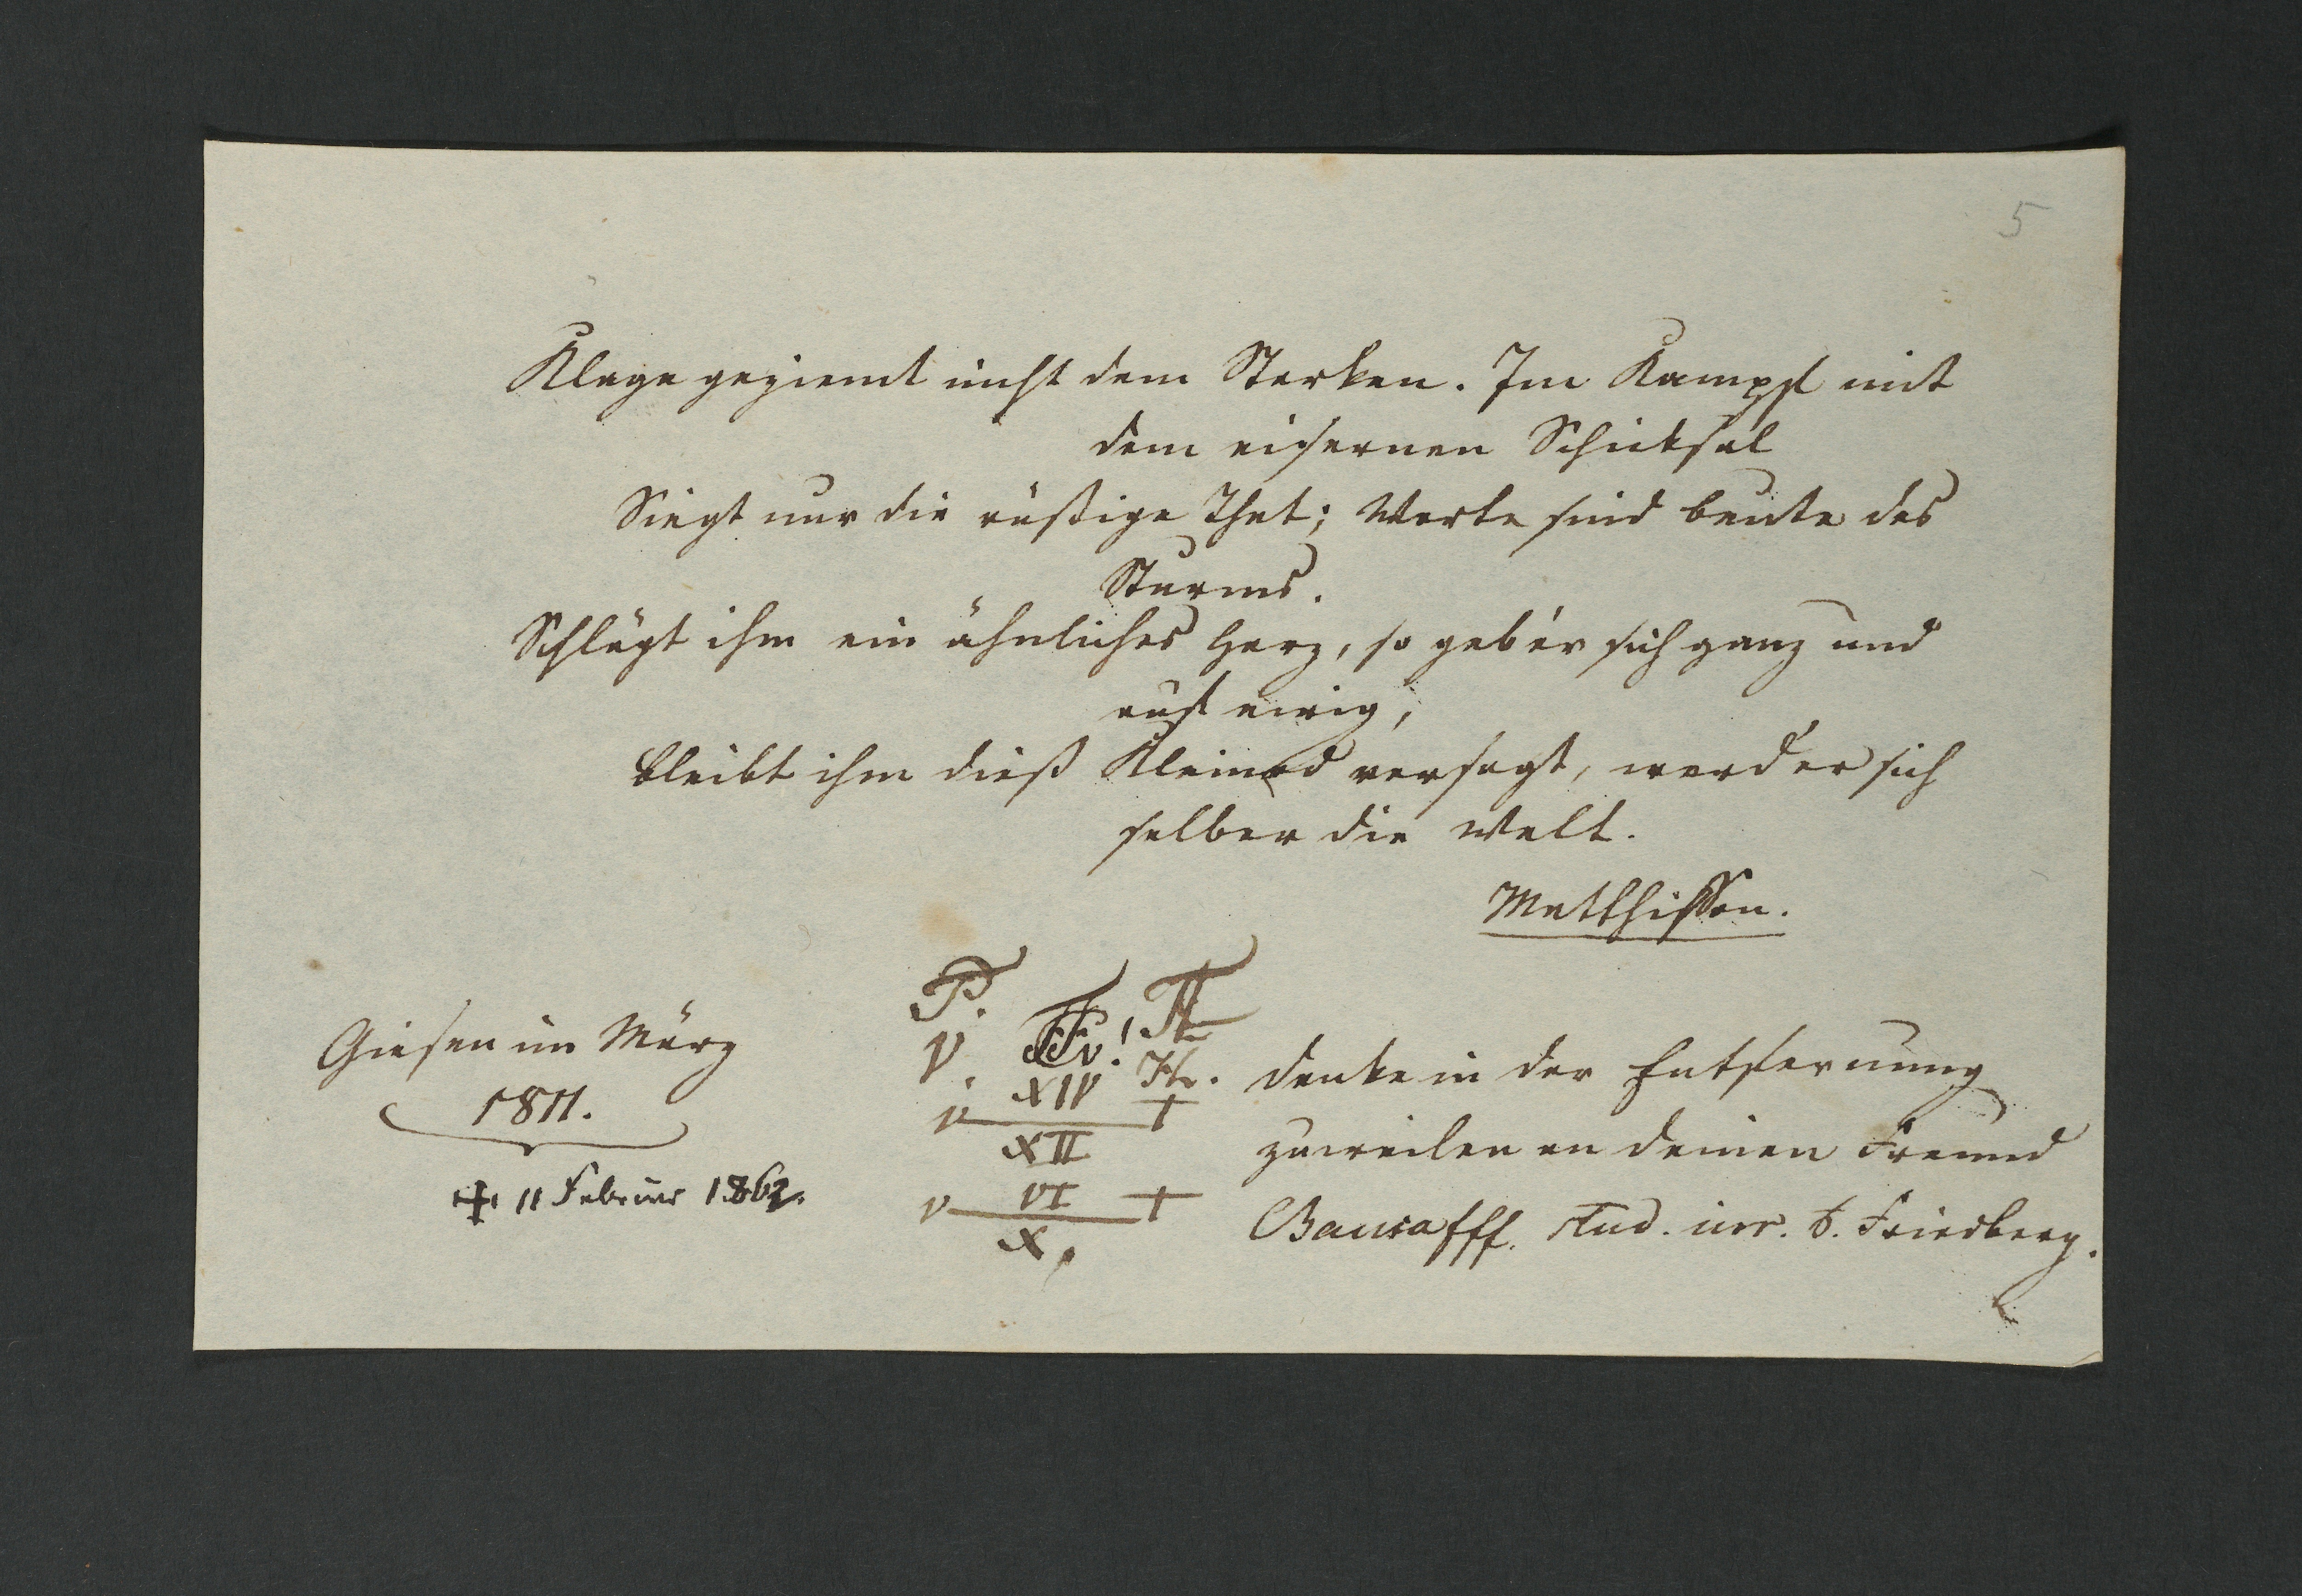 5
Klage geziemt nicht dem Starken. Im Kampf mit
dem eisernen Schicksal
Siegt nur die rüstige That; Worte sind beute des
Sturms.
Schlägt ihm ein ähnliches Herz, so geb'er sich ganz und
auf ewig,
bleibt ihm dieß Kleinod versagt, werd'er sich
selber die Welt.
Matthisson.
Giesen im März
1811.
+ 11 Februar 1862.
P.
V.
XIV
V +
XII
V VI +
X.
denke in der Entfernung
zuweilen an deinen Freund
stud. iur. Friedberg.